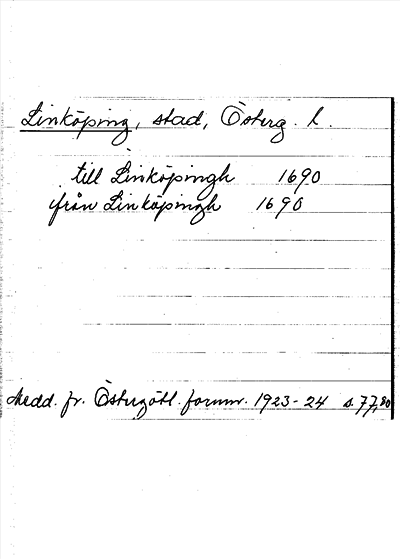 Linköping, stad, Österg. l.
till Linköpingh 1690
ifrån Linköpingh 1690
Medd. fr. Östergötl. fornm. 1923-24 s. 77,80